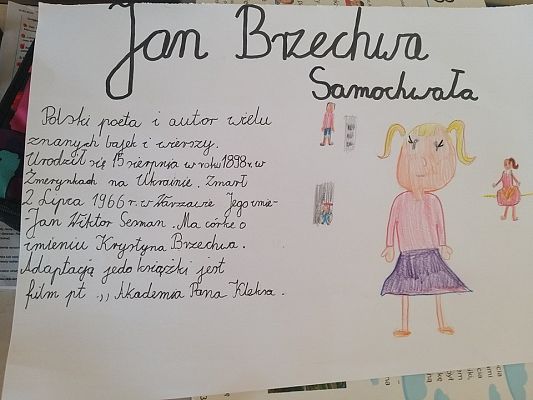 Jan Brzechwa
Samochwała
Polski poeta i autor wielu
znanych bajek i wierszy.
Urodził się 15 sierpnia w roku 1898.r.w
Żmerynkach na Ukrainie. Zmarł
2 Lipca 1966 r. w Warzawie Jego imie-
-Jan Wiktor Lesman. Ma córkę o
imieniu Krystyna Brzechwa.
Adaptacją jedo książki jest
film pt. ,, Akademia Pana Kleksa.